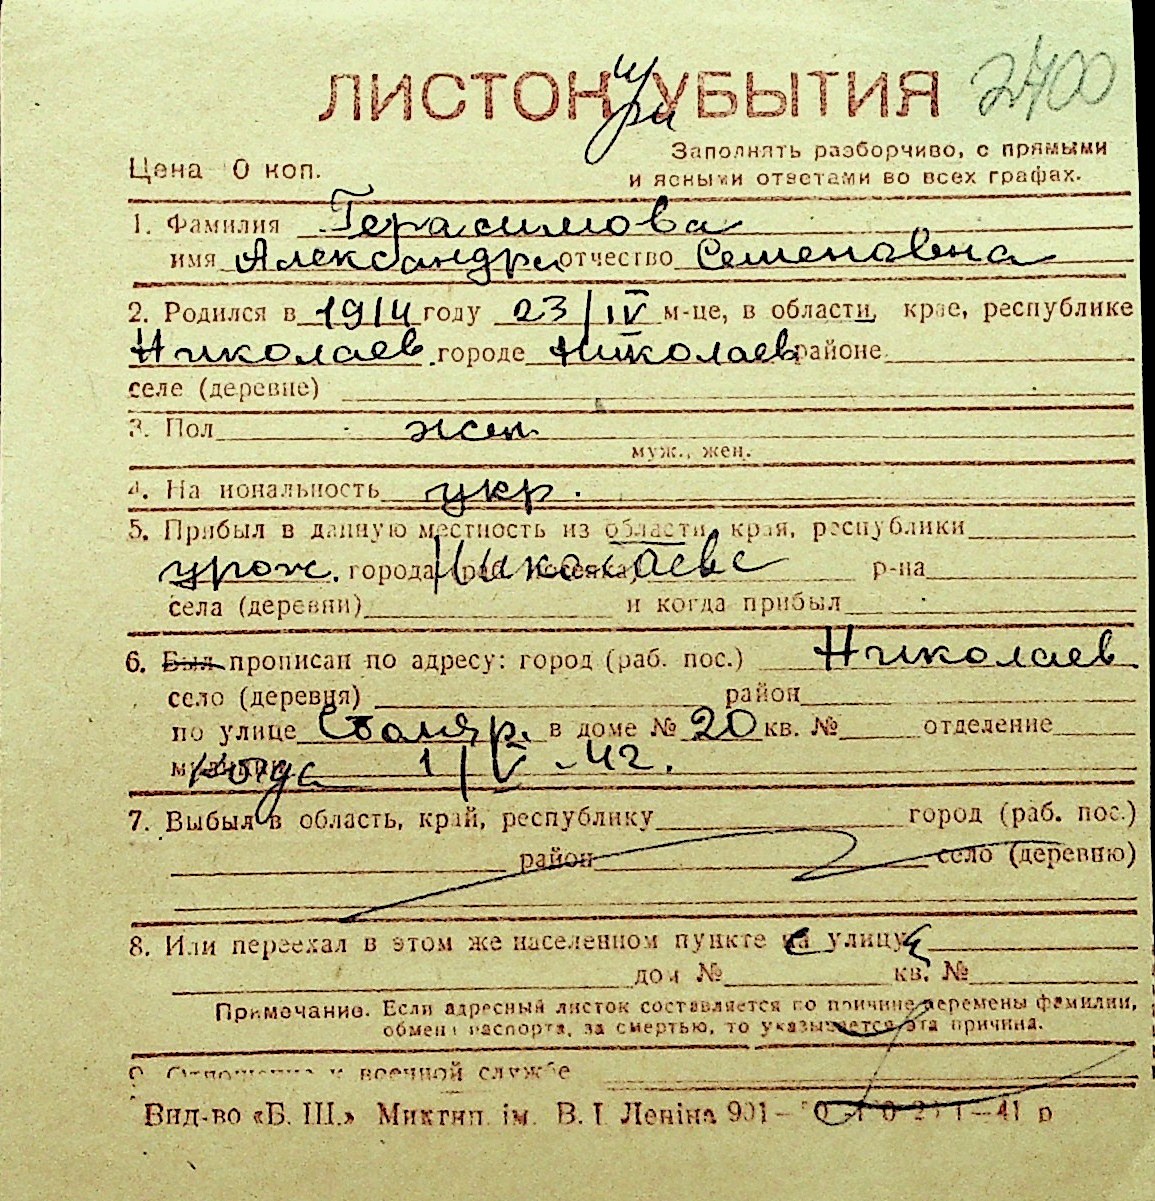 ЛИСТОК УБЫТИЯ
при
2700
Цена 0 коп.
Заполнять разборчиво, с прямыми
и ясными ответами во всех графах.
1. Фамилия Герасимова
имя Александра отчество Семеновна
2. Родился в 1914 году 23/IV м-це, в области, крае, республике
Николаев. городе Николаев районе
селе (деревне)
3. Пол жен
муж., жен.
4. На иональность укр.
5. Прибыл в данную местность из области, края, республики
урож. города Николаева р-на
села (деревни) и когда прибыл
6. Был прописан по адресу: город (раб. пос.) Николаев
село (деревня) район
по улице Столяр. в доме № 20 кв. № отделение
когда 1/V-42.
7. Выбыл в область, край, республику город (раб. пос.)
район село (деревню)
8. Или переехал в этом же населенном пункте улицу
дом № кв. №
Примечание. Если адресный листок составляется по причине перемены фамилии,
обмена паспорта, за смертью, то указывается эта причина.
9. Отношение к военной службе
Вид-во «Б. Ш.» Миктип. ім. В. І. Леніна 901— —41 р